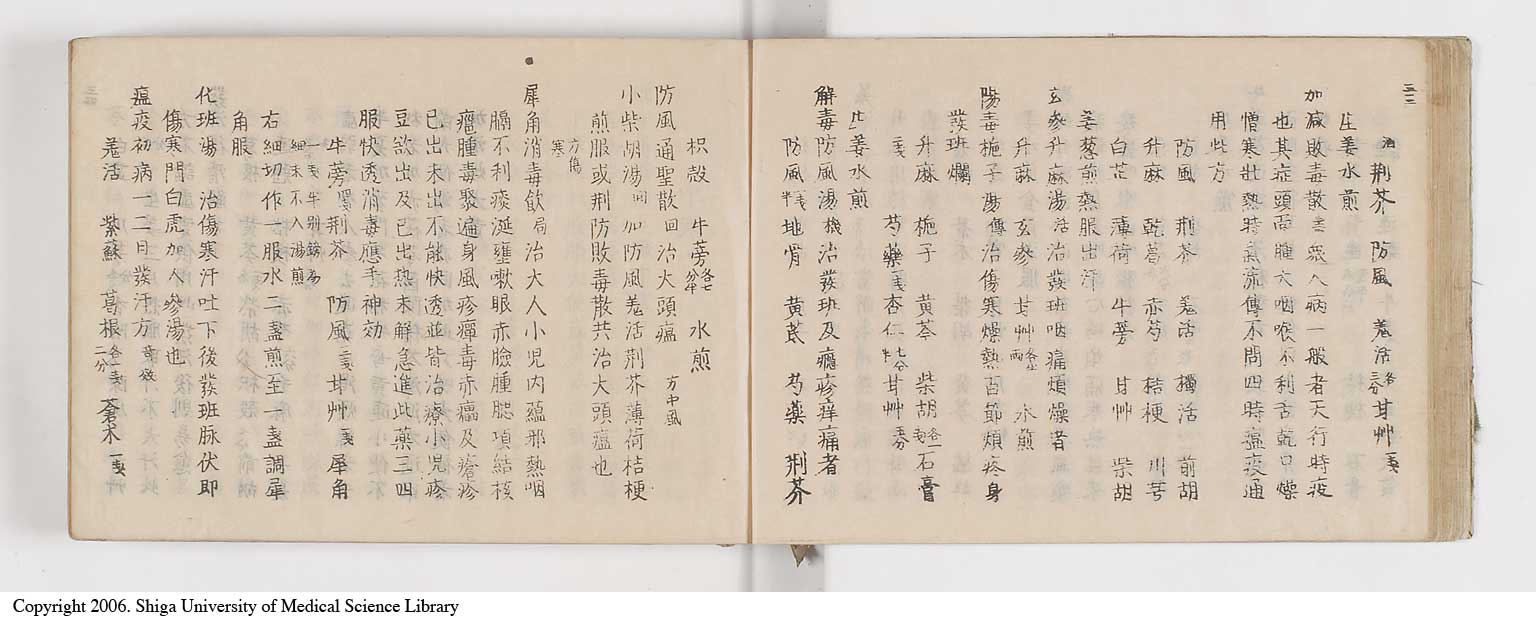 荆芥 防風 羗活 各三分 甘艸 一戋
生姜水煎
加減敗毒散 衆人病一般者天行時疫
也其症頭面腫大咽喉不利舌乾口燥
憎寒壮熱時氣流傳不問四時瘟疫通
用此方
防風 荆芥 羗活 獨活 前胡
升麻 乾葛 赤芍 桔梗 川芎
白芷 薄荷 牛蒡 甘艸 柴胡
姜葱煎熱服出汗
玄參升麻湯 活 治發班咽痛煩燥者
升麻 玄參 甘艸 水煎
陽毒梔子湯 傳 治傷寒燥熱百節煩疼身
發班爛
升麻 梔子 黄芩 柴胡 石膏
芍藥 杏仁 甘艸
生姜水煎
解毒防風湯 機 治發班及癮疹痒痛者
防風 地骨 黄芪 芍藥 荆芥
枳殻 牛蒡 各七分半 水煎
防風通聖散 回 治大頭瘟 方中風
小柴胡湯 回 加防風羗活荆芥薄荷桔梗
煎服或荆防敗毒散共治大頭瘟也
方傷寒
犀角消毒飲 局 治大人小児内蘊邪熱咽
膈不利痰涎壅嗽眼赤臉腫腮項結核
癰腫毒聚遍身風疹癉毒赤瘤及瘡疹
已出未出不能快透並皆治療小児疹
豆欲出及已出热未解急進此藥三四
服快透消毒應手神効
牛蒡 荆芥 防風 二戋 甘艸 戋 犀角
一戋半别鎊為
細末不入湯煎
右細切作一服水二盏煎至一盏調犀
角服
化班湯 治傷寒汗吐下後發班脉伏即
傷寒門白虎加人參湯也
瘟疫初病一二日發汗方 奇效
羗活 紫蘇 葛根 蒼术 一戋